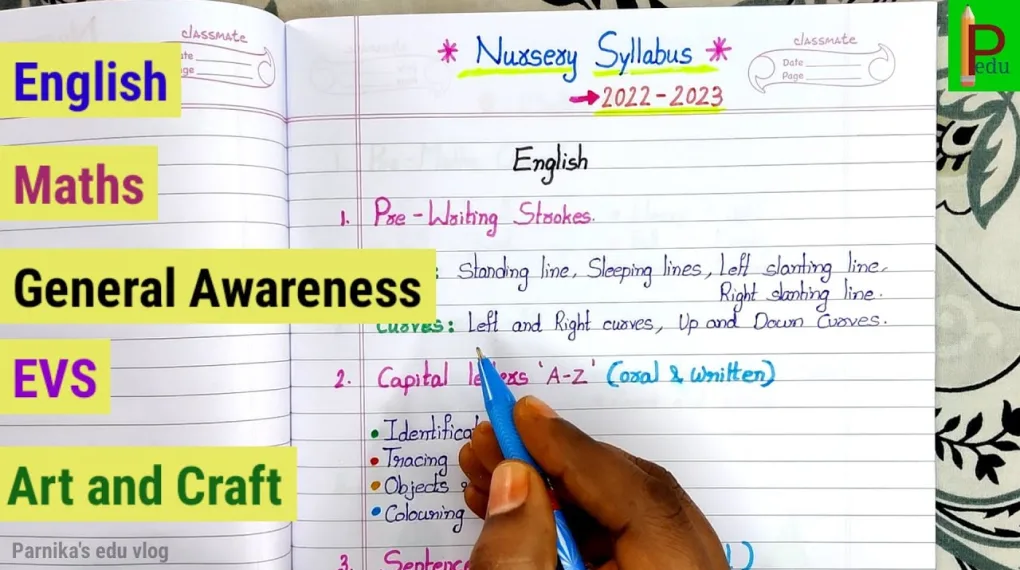 English
Maths
General Awareness
EVS
Art and Craft
Parnika's edu vlog
P
edu
classmate
Page
classmate
Date
Page
* Nursery Syllabus *
→ 2022-2023
English
1. Pre-Writing Strokes.
: Standing line, Sleeping lines, Left slanting line,
Right slanting line.
Curves: Left and Right curves, Up and Down Curves.
2. Capital letters 'A-Z' (oral & written)
• Identificat
• Tracing
• Objects
• Colouring
3. Sentence